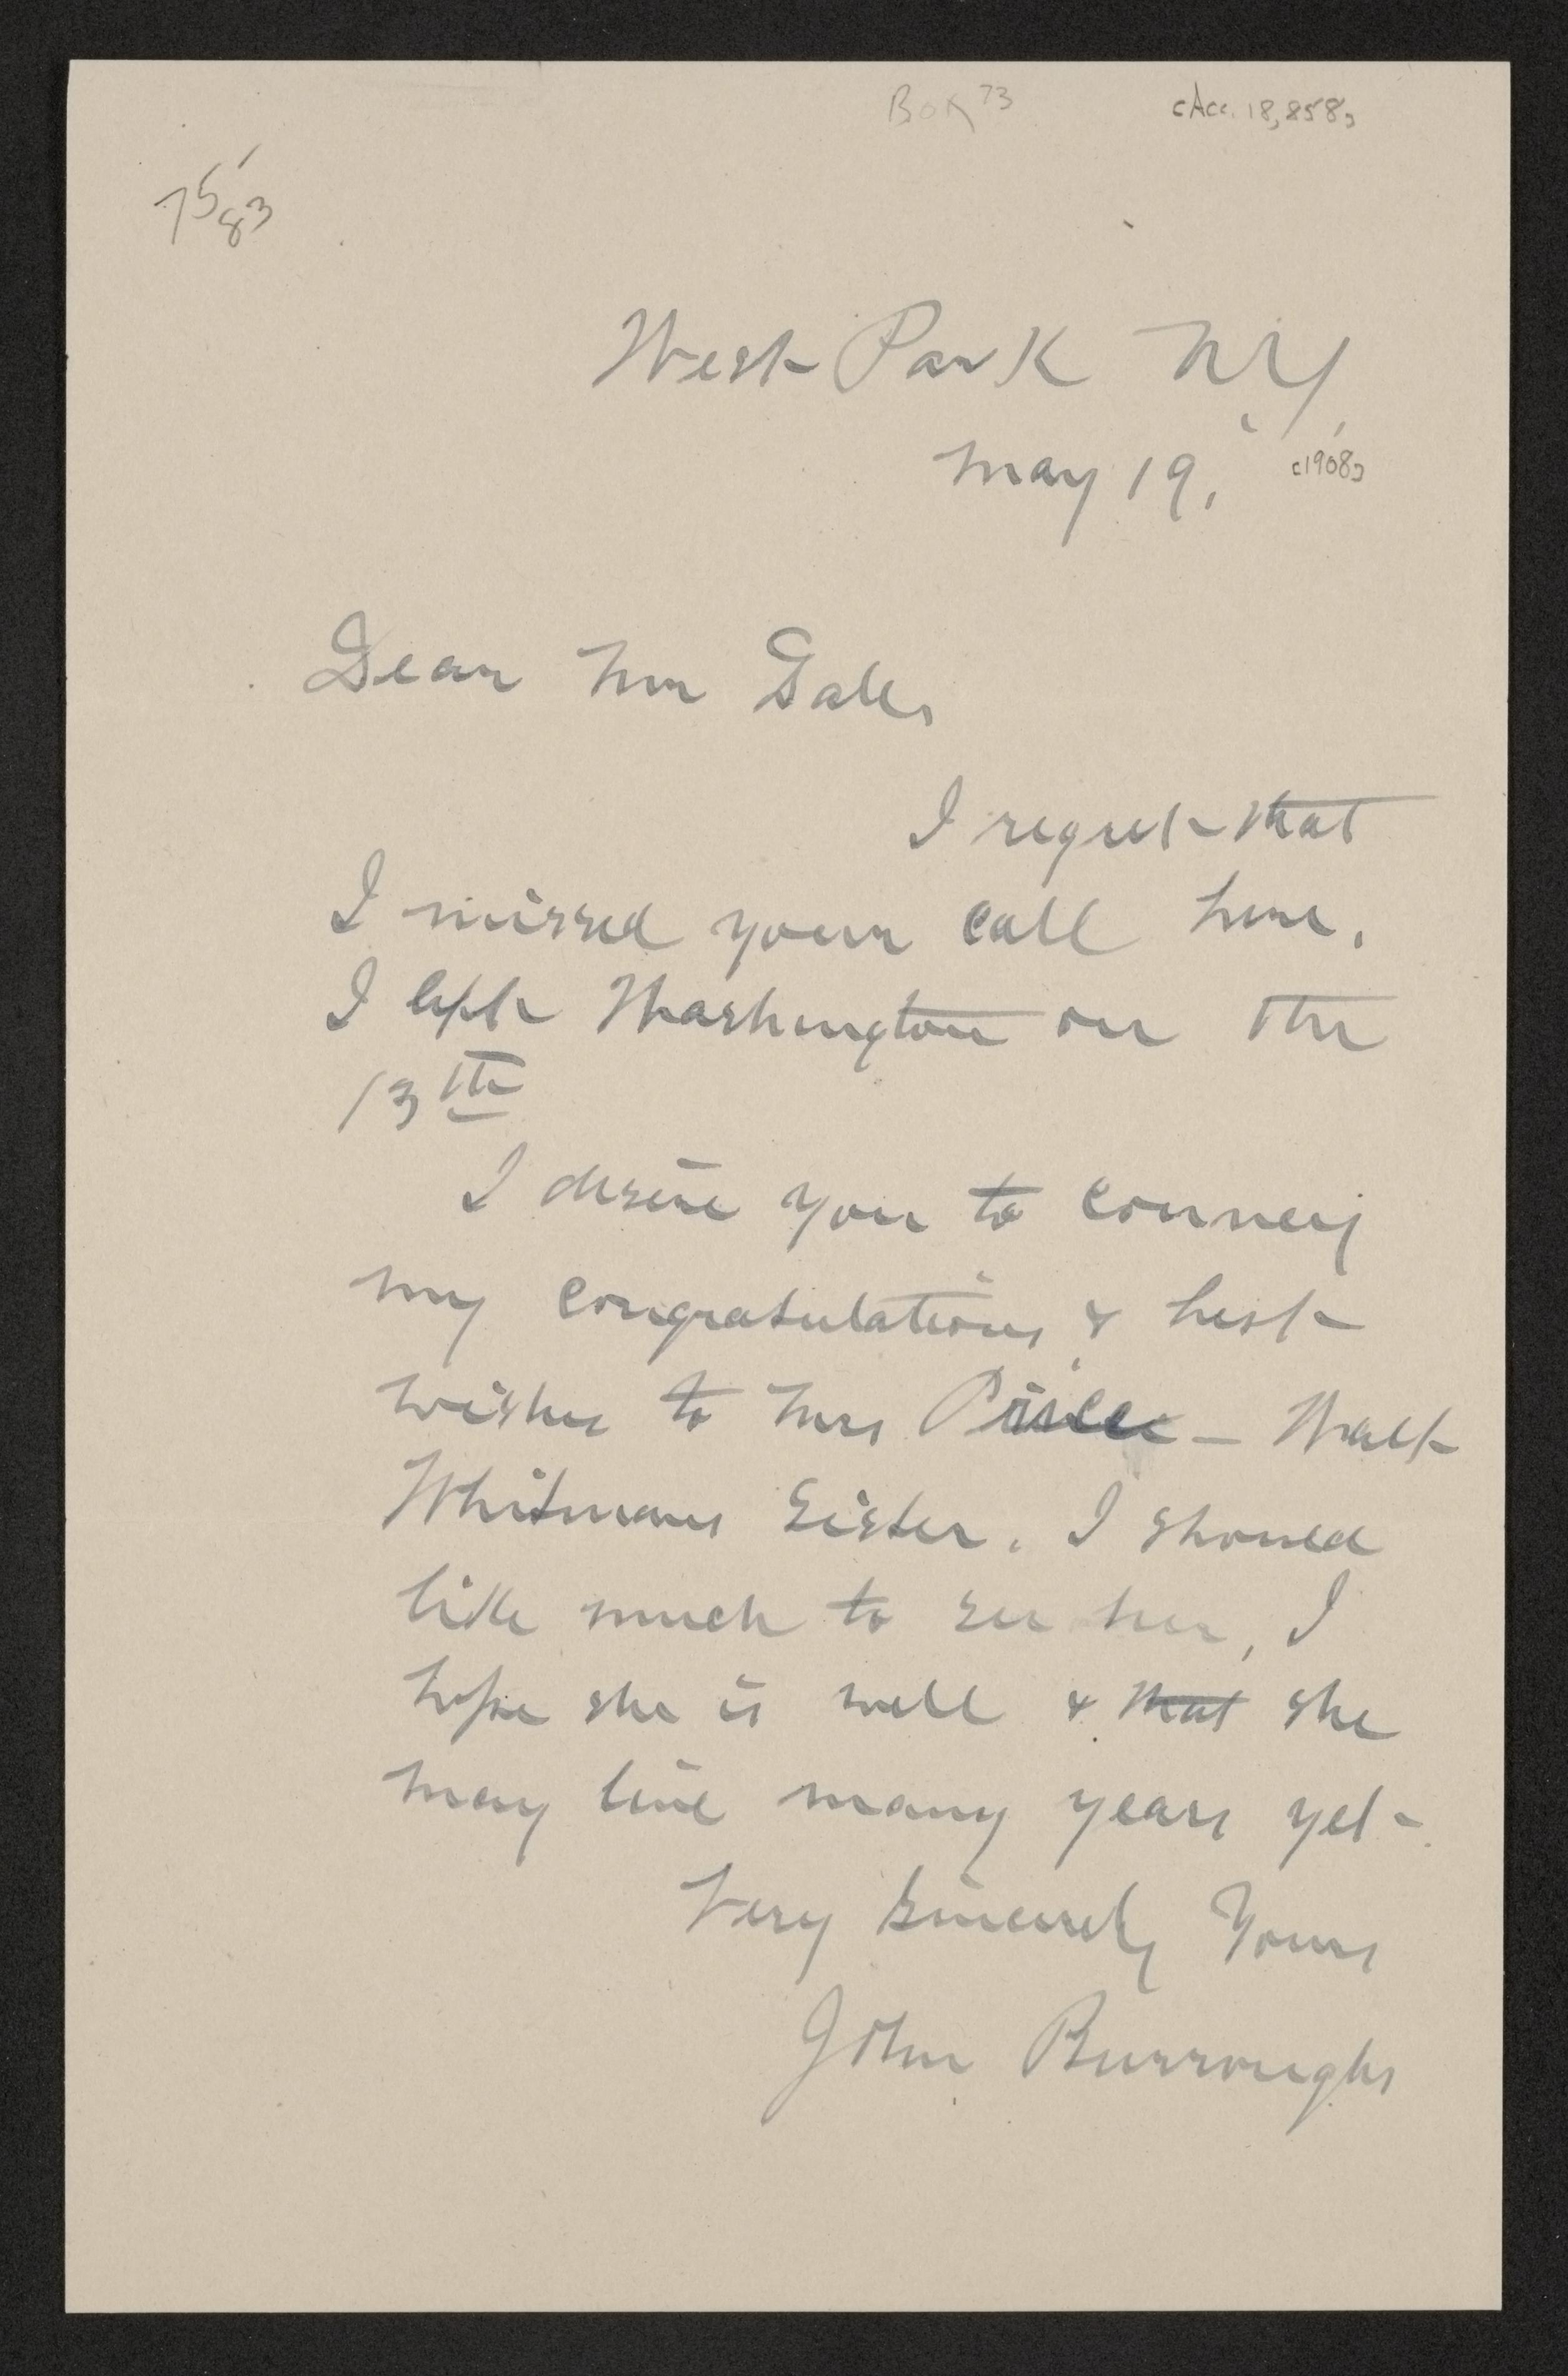 Box 73 [Acc. 18,858]
75
83
West Park N.Y,
May 19, [1908]
Dear Mr
I regret that
I missed your call here.
I left Washington on the
13th
I desire you to convey
my congratulations & best
wishes to Mrs — Walt
Whitmans sister. I should
like much to see her, I
hope she is well & that she
may live many years yet.
Very Sincerely Yours
John Burroughs